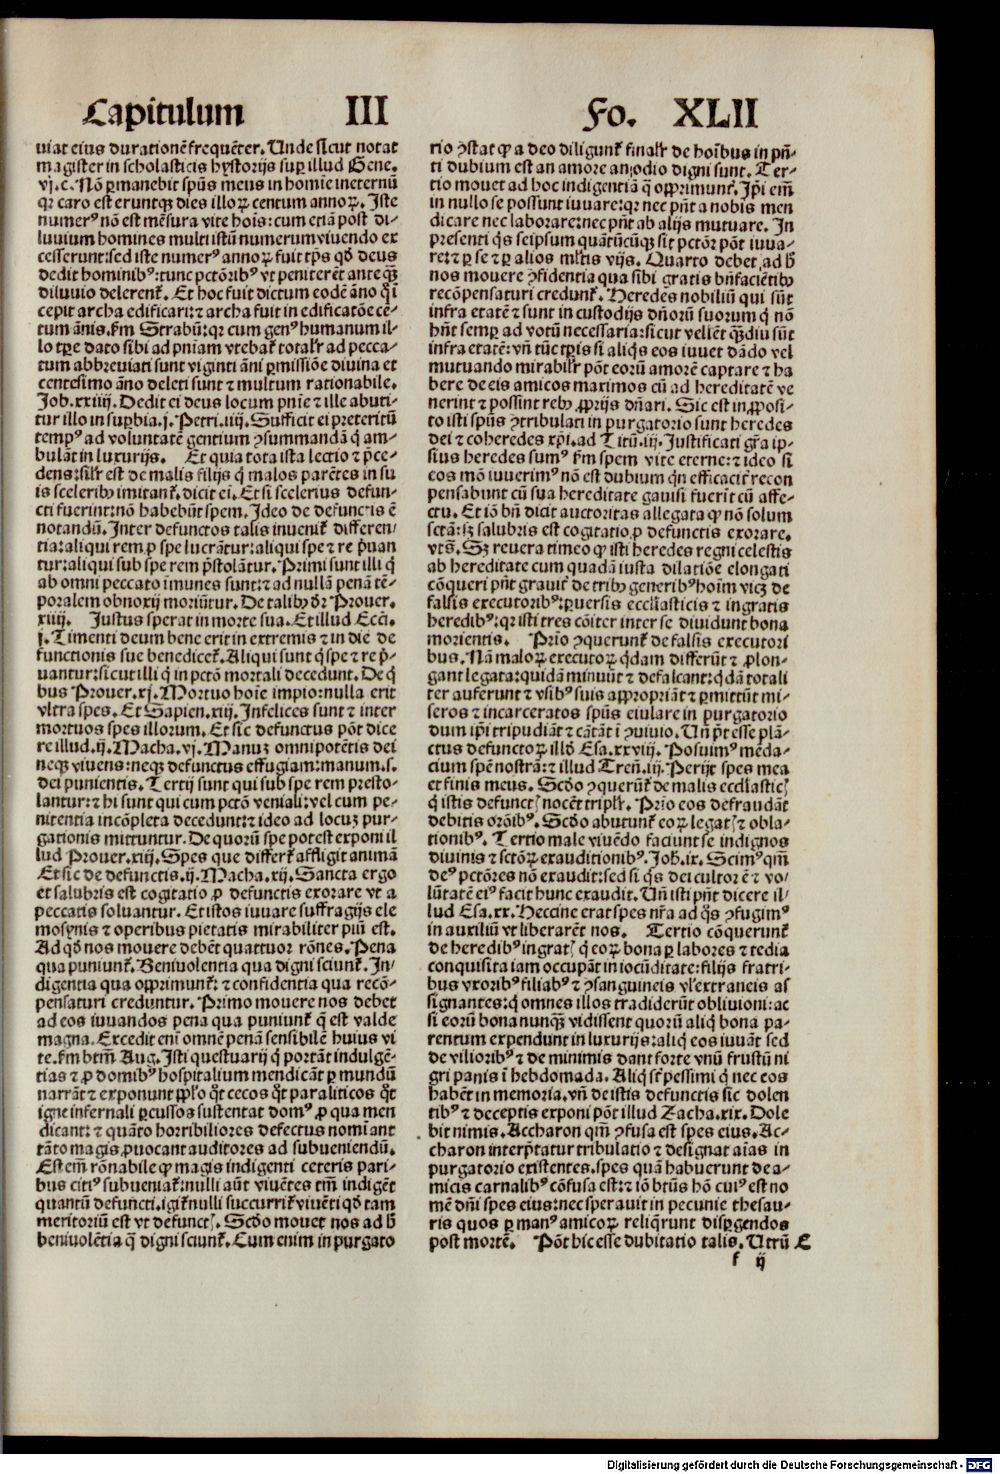 Capitulum III
Fo. XLII
uiat eius durationē frequēter. Unde sicut notat
magister in scholasticis hystorijs suꝑ illud Gene.
vj. c. Nō ꝑmanebit spūs meus in homīe ineternū
qꝛ caro est eruntqꝫ dies illoꝝ centum annoꝝ. Iste
numerꝰ nō est mēsura vite hoīs: cum etiā post di⸗
luuium homines multi istū numerum viuendo ex
cesserunt: sed iste numerꝰ annoꝝ fuit tp̄s qd̄ deus
dedit hominibꝰ: tunc pctōribꝰ vt peniterēt ante qꝫ̄
diluuio delerent̄. Et hoc fuit dictum eodē āno q̄ ī
cepit archa edificari: ⁊ archa fuit in edificatōe cē⸗
tum ānis. ẜm Strabū: qꝛ cum genꝰ humanum il⸗
lo tꝑe dato sibi ad pn̄iam vtebat̄ totalr̄ ad pecca⸗
tum abbreuiati sunt viginti āni ꝑmissiōe diuina et
centesimo āno deleti sunt ⁊ multum rationabile.
Job. xxiiij. Dedit ei deus locum pn̄ie ⁊ ille abuti⸗
tur illo in suꝑbia. j. Petri. iiij. Sufficit ei preteritū
tempꝰ ad voluntatē gentium ꝯsummandā q̄ am⸗
bulāt in luxurijs. Et quia tota ista lectio ⁊ p̄ce⸗
dens: silr̄ est de malis filijs q̄ malos parētes in su
is sceleribꝰ imitant̄. dicit ei. Et si scelerius defun⸗
cti fuerint: nō habebūt spem. Ideo de defunctis ē
notandū. Inter defunctos talis inuenit̄ differen⸗
tia: aliqui rem ꝓ spe lucrātur: aliqui spe ⁊ re p̄uan
tur: aliqui sub spe rem p̄stolātur. Primi sunt illi q̄
ab omni peccato īmunes sunt: ⁊ ad nullā penā tē⸗
poralem obnoxij moriūtur. De talibꝰ dr̄ Prouer.
xiiij. Justus sperat in morte sua. Et illud Eccī.
j. Timenti deum bene erit in extremis ⁊ in die de
functionis sue benedicet̄. Aliqui sunt q̄ spe ⁊ re p̄⸗
uantur: sicut illi q̄ in pctō mortali decedunt. De q̄
bus Prouer. xj. Mortuo hoīe impio: nulla erit
vltra spes. Et Sapien. xiij. Infelices sunt ⁊ inter
mortuos spes illorum. Et sic defunctus pōt dice
re illud. ij. Macha. vj. Manuꝫ omnipotētis dei
neqꝫ viuens: neqꝫ defunctus effugiam: manum. s.
dei punientis. Tertij sunt qui sub spe rem presto⸗
lantur: ⁊ hi sunt qui cum pctō veniali: vel cum pe⸗
nitentia incōpleta decedunt: ⁊ ideo ad locuꝫ pur⸗
gationis mittuntur. De quorū spe potest exponi il
lud Prouer. xiij. Spes que differt̄ affligit animā
Et sic de defunctis. ij. Macha. xij. Sancta ergo
et salubris est cogitatio ꝓ defunctis exorare vt a
peccatis soluantur. Et istos iuuare suffragijs ele
mosynis ⁊ operibus pietatis mirabiliter piū est.
Ad qd̄ nos mouere debēt quattuor rōnes. Pena
qua puniunt̄. Beniuolentia qua digni sciunt̄. In⸗
digentia qua opprimunt̄: ⁊ confidentia qua recō⸗
pensaturi creduntur. Primo mouere nos debet
ad eos iuuandos pena qua puniunt̄ q̄ est valde
magna. Excedit enī omnē penā sensibilē huius vi
te. ẜm btm̄ Aug. Isti questuarij q̄ portāt indulgē⸗
tias ⁊ ꝓ domibꝰ hospitalium mendicāt ꝑ mundū
narrāt ⁊ exponunt pplo qt̄ cecos qt̄ paraliticos qt̄
igne infernali ꝑcussos sustentat domꝰ ꝓ qua men
dicant: ⁊ quāto horribiliores defectus nomīant
tāto magis ꝓuocant auditores ad subueniendū.
Est em̄ rōnabile ꝙ magis indigenti ceteris pari⸗
bus citiꝰ subueniat̄: nulli aūt viuētes tm̄ indigēt
quantū defuncti. igit̄ nulli succurrit̄ viuēti qd̄ tam
meritoriū est vt defunctꝭ. Scd̄o mouet nos ad ħ
beniuolētia q̄ digni sciunt̄. Cum enim in purgato
rio ꝯstat ꝙ a deo diligunt̄ finalr̄ de hoībus in pn̄⸗
ti dubium est an amore an odio digni sunt. Ter⸗
tio mouet ad hoc indigentiā q̄ opprimunt̄. Ip̄i em̄
in nullo se possunt iuuare: qꝛ nec pn̄t a nobis men
dicare nec laborare: nec pn̄t ab alijs mutuare. In
presenti q̄s seipsum quātūcūqꝫ sit pctōr pōt iuua⸗
re: ⁊ ꝑ se ⁊ ꝑ alios mltis vijs. Quarto debet ad ħ
nos mouere ꝯfidentia qua sibi gratis bn̄facientibꝰ
recōpensaturi credunt̄. Heredes nobiliū qui sūt
infra etatē ⁊ sunt in custodijs dn̄orū suorum q̄ nō
hn̄t semꝑ ad votū necessaria: sicut vellēt qꝫ̄diu sūt
infra etatē: vn̄ tūc tꝑis si aliq̄s eos iuuet dādo vel
mutuando mirabilr̄ pōt eorū amorē captare ⁊ ha
bere de eis amicos maximos cū ad hereditatē ve
nerint ⁊ possint rebꝰ ꝓprijs dn̄ari. Sic est in ꝓposi⸗
to isti spūs ꝯtribulati in purgatorio sunt heredes
dei ⁊ coheredes xp̄i. ad Titū. iij. Justificati gr̄a ip⸗
sius heredes sumꝰ ẜm spem vite eterne: ⁊ ideo si
eos mō iuuerimꝰ nō est dubium q̄n efficacit̄ recon
pensabunt cū sua hereditate gauisi fuerīt cū affe⸗
ctu. Et iō bn̄ dicit auctoritas allegata ꝙ nō solum
sctā: sꝫ salubris est cogitatio ꝓ defunctis exorare.
vt s̄. Sꝫ reuera timeo ꝙ isti heredes regni celestis
ab hereditate cum quadā iusta dilatiōe elongati
cōqueri pn̄t grauit̄ de tribꝰ generibꝰ hoīm vicꝫ de
falsis executoribꝰ: ꝑuersis eccl̄iasticis ⁊ ingratis
heredibꝰ: qꝛ isti tres cōiter inter se diuidunt bona
morientis. Prīo ꝯquerunt̄ de falsis executori
bus. Nā maloꝝ executoꝝ q̄dam differūt ⁊ ꝓlon⸗
gant legata: quidā minuūt ⁊ defalcant: q̄dā totali
ter auferunt ⁊ vsibꝰ suis appropriāt ⁊ ꝑmittūt mi⸗
seros ⁊ incarceratos spūs eiulare in purgatorio
dum ip̄i tripudiāt ⁊ cātāt ī ꝯuiuio. Un̄ p̄t esse plā⸗
ctus defunctoꝝ illd̄ Esa. xxviij. Posuimꝰ mēda⸗
cium spē nostrā: ⁊ illud Tren̄. iij. Perijt spes mea
et finis meus. Scd̄o ꝯquerūt̄ de malis eccl̄iasticꝭ
q̄ istis defunctꝭ nocēt triplr̄. Prīo eos defraudāt
debitis orōibꝰ. Scd̄o abutunt̄ eoꝝ legatꝭ ⁊ obla⸗
tionibꝰ. Tertio male viuēdo faciunt se indignos
diuinis ⁊ sctōꝝ exauditionibꝰ. Joh̄. ix. Scimꝰ qm̄
deꝰ pctōres nō exaudit: sed si q̄s dei cultor ē ⁊ vo⸗
lūtatē eiꝰ facit hunc exaudit. Un̄ isti pn̄t dicere il⸗
lud Esa. xx. Heccine erat spes nr̄a ad q̄s ꝯfugimꝰ
in auxiliū vt liberarēt nos. Tertio cōquerunt̄
de heredibꝰ ingratꝭ q̄ eoꝝ bona ꝑ labores ⁊ tedia
conquisita iam occupāt in iocūditate: filijs fratri⸗
bus vxoribꝰ filiabꝰ ⁊ ꝯsanguineis vl̄ extraneis as
signantes: q̄ omnes illos tradiderūt obliuioni: ac
si eorū bona nunqꝫ̄ vidissent quorū aliq̄ bona pa⸗
rentum expendunt in luxurijs: aliq̄ eos iuuāt sed
de vilioribꝰ ⁊ de minimis dant forte vnū frustū ni
gri panis ī hebdomada. Aliq̄ sūt pessimi q̄ nec eos
habēt in memoria. vn̄ de istis defunctis sic dolen
tibꝰ ⁊ deceptis exponi pōt illud Zacha. xix. Dole
bit nimis. Accharon qm̄ ꝯfusa est spes eius. Ac⸗
charon interp̄tatur tribulatio ⁊ designat aīas in
purgatorio existentes. spes quā habuerunt de a⸗
micis carnalibꝰ cōfusa est: ⁊ iō btūs hō cuiꝰ est no
mē dn̄i spes eius: nec sperauit in pecunie thesau⸗
ris quos ꝑ manꝰ amicoꝝ reliq̄runt disꝑgendos
post mortē. Pōt hic esse dubitatio talis. Utrū E
f ij
Digitalisierung gefördert durch die Deutsche Forschungsgemeinschaft - DFG